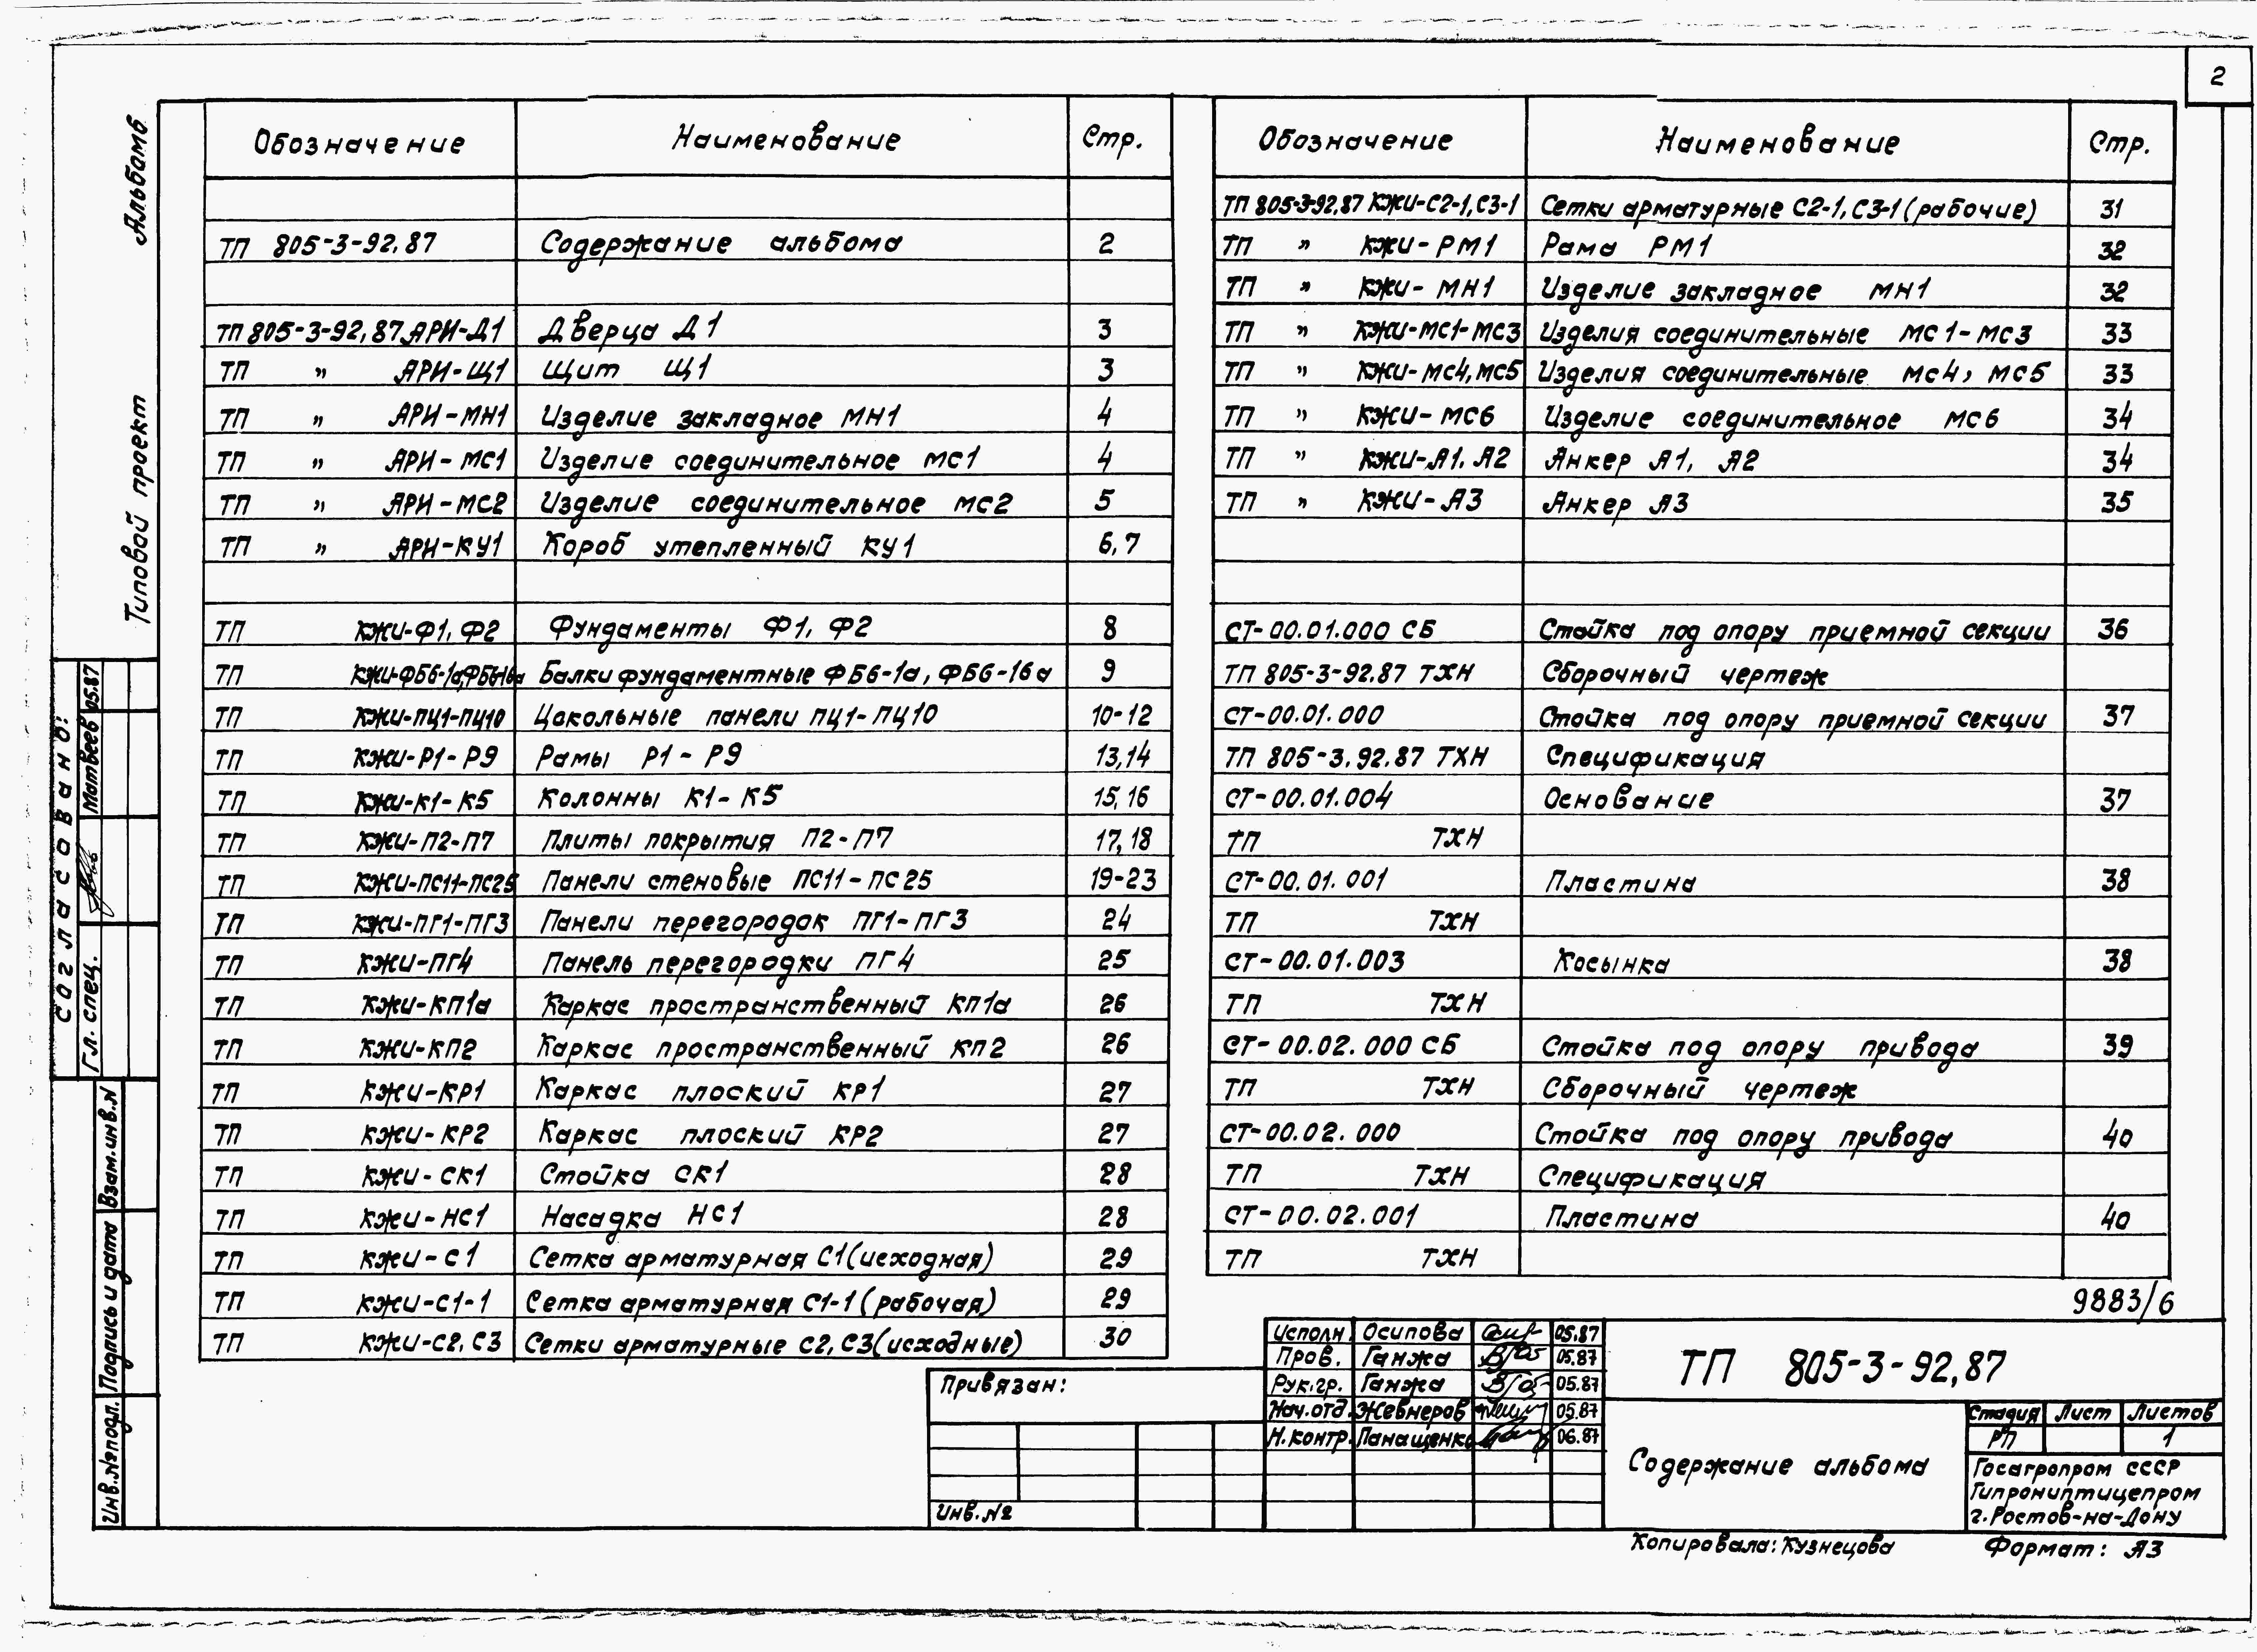 2
Альбом 6
Типовой проект
Обозначение Наименование Стр.
ТП 805-3-92,87 Содержание альбома 2
ТП 805-3-92,87 АРИ-Д1 Дверца Д1 3
ТП " АРИ-Щ1 Щит Щ1 3
ТП " АРИ-МН1 Изделие закладное МН1 4
ТП " АРИ-МС1 Изделие соединительное МС1 4
ТП " АРИ-МС2 Изделие соединительное МС2 5
ТП " АРИ-КУ1 Короб утепленный КУ1 6,7
ТП КЖИ-Ф1, Ф2 Фундаменты Ф1, Ф2 8
ТП КЖИ-ФБ6-1а,ФБ6-16а Балки фундаментные ФБ6-1а, ФБ6-16а 9
ТП КЖИ-ПЦ1-ПЦ10 Цокольные панели ПЦ1-ПЦ10 10-12
ТП КЖИ-Р1-Р9 Рамы Р1-Р9 13,14
ТП КЖИ-К1-К5 Колонны К1-К5 15,16
ТП КЖИ-П2-П7 Плиты покрытия П2-П7 17,18
ТП КЖИ-ПС11-ПС25 Панели стеновые ПС11-ПС25 19-23
ТП КЖИ-ПГ1-ПГ3 Панели перегородок ПГ1-ПГ3 24
ТП КЖИ-ПГ4 Панель перегородки ПГ4 25
ТП КЖИ-КП1а Каркас пространственный КП1а 26
ТП КЖИ-КП2 Каркас пространственный КП2 26
ТП КЖИ-КР1 Каркас плоский КР1 27
ТП КЖИ-КР2 Каркас плоский КР2 27
ТП КЖИ-СК1 Стойка СК1 28
ТП КЖИ-НС1 Насадка НС1 28
ТП КЖИ-С1 Сетка арматурная С1(исходная) 29
ТП КЖИ-С1-1 Сетка арматурная С1-1(рабочая) 29
ТП КЖИ-С2, С3 Сетки арматурные С2, С3(исходные) 30
Обозначение Наименование Стр.
ТП 805-3-92,87 КЖИ-С2-1,С3-1 Сетки арматурные С2-1, С3-1(рабочие) 31
ТП " КЖИ-РМ1 Рама РМ1 32
ТП " КЖИ-МН1 Изделие закладное МН1 32
ТП " КЖИ-МС1-МС3 Изделия соединительные МС1-МС3 33
ТП " КЖИ-МС4,МС5 Изделия соединительные МС4, МС5 33
ТП " КЖИ-МС6 Изделие соединительное МС6 34
ТП " КЖИ-А1, А2 Анкер А1, А2 34
ТП " КЖИ-А3 Анкер А3 35
СТ-00.01.000 СБ Стойка под опору приемной секции 36
ТП 805-3-92.87 ТХН Сборочный чертеж
СТ-00.01.000 Стойка под опору приемной секции 37
ТП 805-3.92.87 ТХН Спецификация
СТ-00.01.004 Основание 37
ТП ТХН
СТ-00.01.001 Пластина 38
ТП ТХН
СТ-00.01.003 Косынка 38
ТП ТХН
СТ-00.02.000 СБ Стойка под опору привода 39
ТП ТХН Сборочный чертеж
СТ-00.02.000 Стойка под опору привода 40
ТП ТХН Спецификация
СТ-00.02.001 Пластина 40
ТП ТХН
9883/6
Согласовано:
Гл. спец. Матвеев 05.87
Взам.инв.N
Подпись и дата
Инв.№подл.
Привязан:
Инв.№
Исполн. Осипова 05.87
Пров. Ганжа 05.87
Рук.гр. Ганжа 05.87
Нач.отд. Жевнеров 05.87
Н.контр. Панащенко 06.87
ТП 805-3-92,87
Содержание альбома
Стадия Лист Листов
РП 1
Госагропром СССР
Гипрониптицепром
г.Ростов-на-Дону
Копировала: Кузнецова Формат: А3